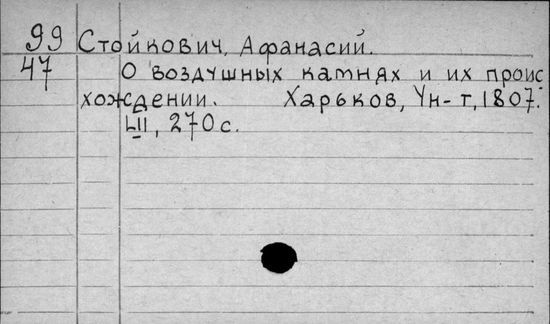 99 Стойкович, Афанасий.
47 О воздушных камнях и их проис
хождении. Харьков, Ун-т, 1807.
LII, 270 с.